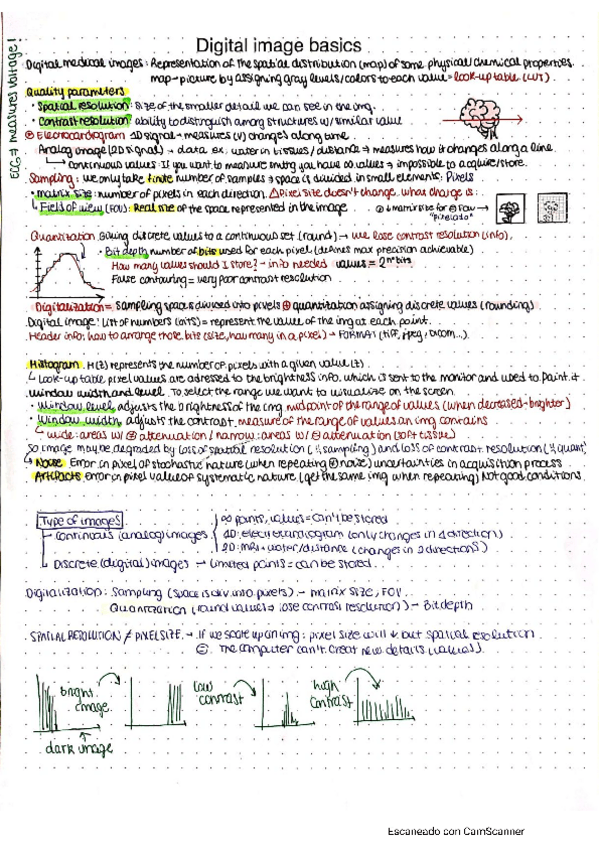 Digital image basics
ECG → measures voltage!
Digital medical images: Representation of the spatial distribution (map) of some physical/chemical properties.
map → picture by assigning gray levels/colors to each value → look-up table (LUT).
Quality parameters
· Spatial resolution: Size of the smaller detail we can see in the img.
· Contrast resolution: ability to distinguish among structures w/ similar value
Electrocardiogram 1D signal → measures (V) changes along time
Analog image (2D signal) → data ex: water in tissues / distance → measures how it changes along a line
↳ Continuous values: If you want to measure smthg you have ∞ values → impossible to acquire/store.
Sampling: we only take finite number of samples → space is divided in small elements: Pixels
· matrix size: number of pixels in each direction. △ Pixel size doesn't change, what change is:
↳ Field of view (FOV): Real size of the space represented in the image
↓ matrix size for = FOV →
"pixelado"
Quantization: Giving discrete values to a continuous set (round) → we lose contrast resolution (info).
· Bit depth number of bits used for each pixel (defines max precision achievable)
How many values should I store? → info needed values = 2^n bits
False contouring = very poor contrast resolution
Digitalization = Sampling space divided into pixels ⊕ quantization assigning discrete values (rounding)
Digital image: List of numbers (bits) = represent the value of the img at each point.
Header info: how to arrange those bits (size, how many in a pixel) → FORMAT (tiff, jpeg, Dicom...).
Histogram. H(z) represents the number of pixels with a given value (z)
↳ Look-up table pixel values are adressed to the brightness info. which is sent to the monitor and used to paint it.
Window width and level. To select the range we want to visualize on the screen.
· Window level adjusts the brightness of the img midpoint of the range of values (when decreased → brighter)
· Window width adjusts the contrast. measure of the range of values an img contains
↳ wide: areas w/ ⊕ attenuation / narrow: areas w/ ⊖ attenuation (soft tissue)
So image may be degraded by loss of spatial resolution (½ sampling) and loss of contrast resolution (½ quant)
↳ Noise Error in pixel of stochastic nature (when repeating noise) uncertainties in acquisition process
Artifacts error in pixel value of systematic nature (get the same img when repeating) Not good conditions.
Type of images
Continuous (analog) images
∞ points, values = can't be stored
1D: electrocardiogram (only changes in 1 direction)
2D: MRI → water/distance (changes in 2 directions)
Discrete (digital) images → Limited points = can be stored.
Digitalization: Sampling (space is div. into pixels) → matrix size, FOV.
Quantization (round values → lose contrast resolution) → Bit depth
SPATIAL RESOLUTION ≠ PIXEL SIZE → If we scale up an img: pixel size will ↓ but spatial resolution
=. The computer can't creat new details (values).
bright image
low contrast
high contrast
dark image
Escaneado con CamScanner